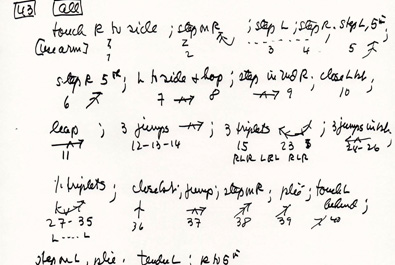 43 all
touch R to side ; step on R ; step L ; step R. step L, 5th ;
1 2 3 4 5
step R 5th. L to side & hop ; step in 2nd R. close 1st ;
6 7 8 9 10
leap ; 3 jumps ; 3 triplets ; 3 jumps in 1st ;
11 12-13-14 15 23 24-26
RLR LRL RLR
triplets ; close 1st ; jump ; step on R ; plié ; touch L behind ;
27-35 36 37 38 39 40
L L
step on L, plié. tendu L ; R to 5th